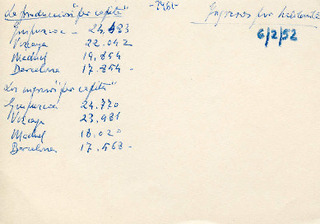 La producción "per cápita" -
Guipuzcoa - 24.683
Vizcaya 22.042
Madrid 19.854
Barcelona 17.854 -
Los ingresos "per cápita" -
Guipuzcoa 24.770
Vizcaya 23.981
Madrid 18.020
Barcelona 17.568 -
Ingresos por habitante
6/2/52